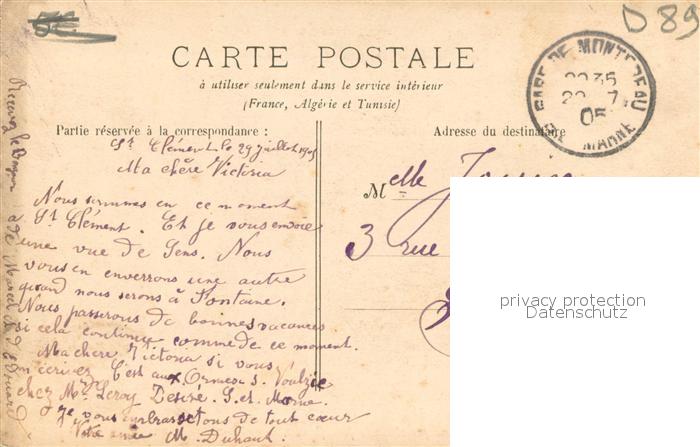 D 89
CARTE POSTALE
à utiliser seulement dans le service intérieur
(France, Algérie et Tunisie)
Partie réservée à la correspondance :
Adresse du destinataire
GARE DE MONTEREAU
29 7
05
MARNE
St Clément le 29 Juillet 1905
Ma chère Victoria
Nous sommes en ce moment
à St Clément. Et je vous envoie
une vue de Sens. Nous
vous en enverrons une autre
quand nous serons à Fontaine.
Nous passerons de bonnes vacances
si cela continue comme de ce moment.
Ma chère Victoria si vous
m'écrivez c'est aux Ormes s. Voulzie
chez Mr Leroy Desiré S. et Marne.
Je vous embrassetons de tout cœur
Votre amie M. Duhaut.
Recevez le Bonjour
de Marcel et d'Edouard
Melle
3 rue
privacy protection
Datenschutz